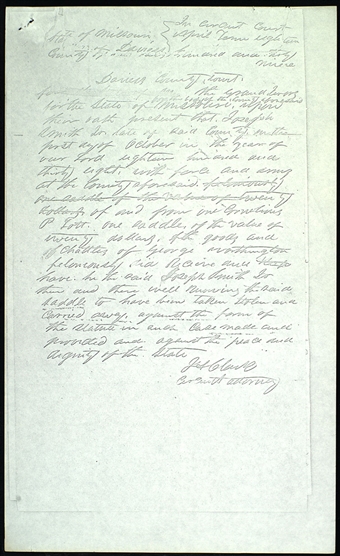 State of Missouri } In Circuit Court
County of Daviess } April Term eighteen
hundred and thirty
nine
Daviess County, Court.
the Grand Jurors
for the State of Missouri, upon
their oath present that Joseph
Smith Jr. late of said County on the
first day of October in the year of
our Lord eighteen hundred and
thirty eight, with force and arms
at the County aforesaid feloniously
one saddle of the value of twenty
dollars of and from one Cornelius
P Lott. one saddle, of the value of
twenty dollars, the goods and
chattles of George Worthington
feloniously did Receive and
have. he the said Joseph Smith Jr
then and there well knowing the said
saddle to have been taken stolen and
Carried away, against the form of
the statute in such Case made and
provided and against the peace and
dignity of the State
J A Clark
Circuit attorney